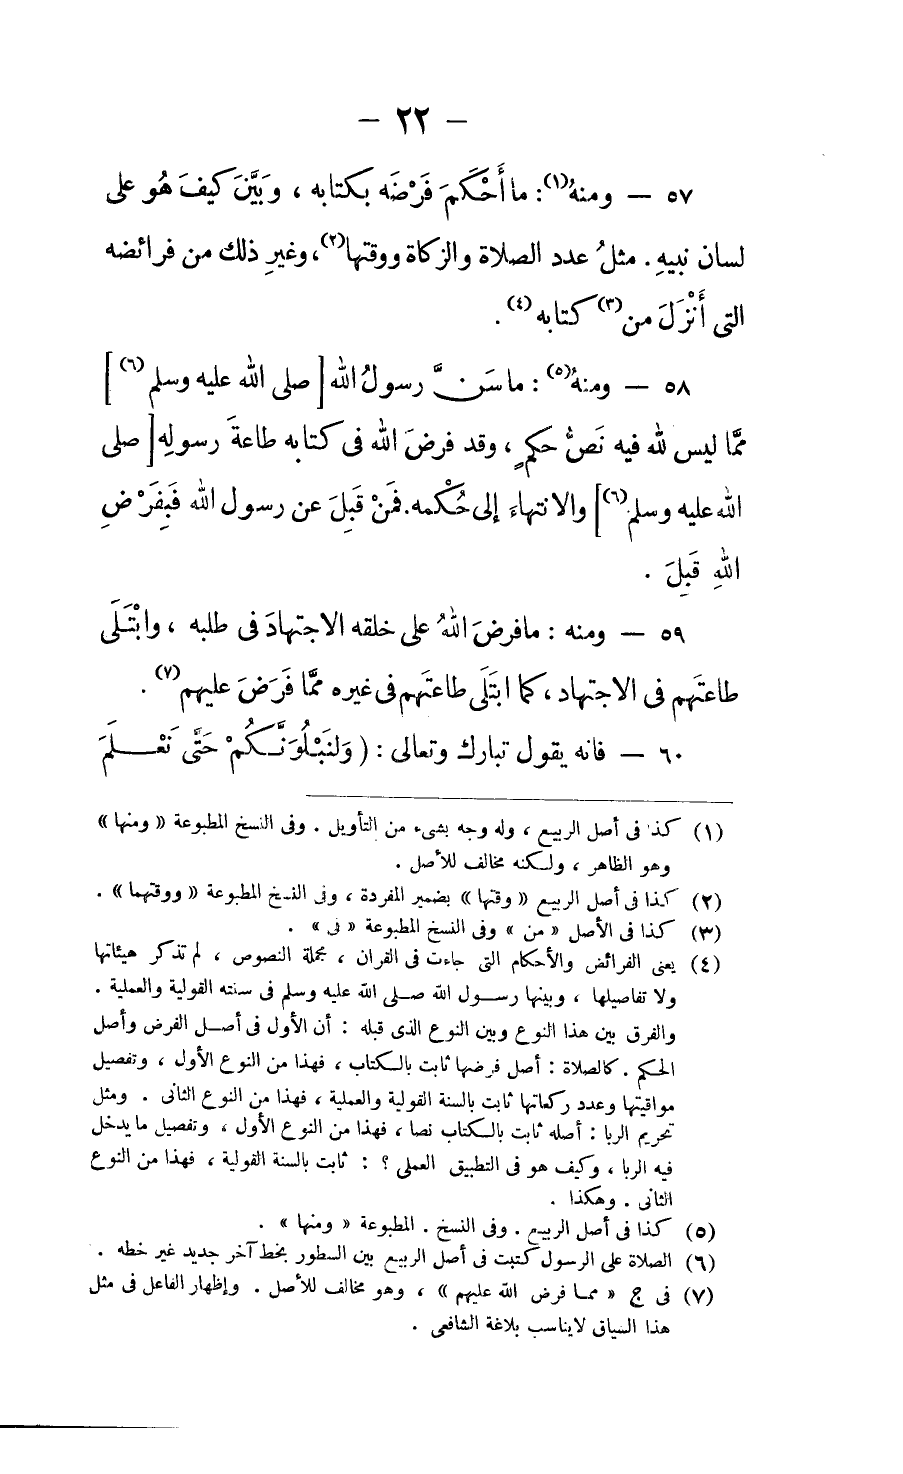 — ٢٢ —
٥٧ — ومنهُ(١): ما أَحْكَمَ فَرْضَه بكتابه ، وبَيَّنَ كيفَ هُو على
لسان نبيهِ . مثلُ عدد الصلاة والزكاة ووقتها(٢)، وغيرِ ذلك من فرائضه
التى أَنْزَلَ من(٣) كتابه(٤) .
٥٨ — ومنهُ(٥): ما سَنَّ رسولُ الله [صلى الله عليه وسلم(٦)]
ممَّا ليس لله فيه نَصُّ حكمٍ ، وقد فرضَ الله فى كتابه طاعةَ رسولِه [صلى
الله عليه وسلم(٦)] والانتهاءَ إلى حُكْمه. فمَنْ قَبِلَ عن رسول الله فَبِفَرْضِ
اللهِ قَبِلَ .
٥٩ — ومنه : مافرضَ اللهُ على خلقه الاجتهادَ فى طلبه ، وابْتَلَى
طاعتَهم فى الاجتهاد ، كما ابتَلَى طاعتَهم فى غيره ممَّا فَرَضَ عليهم(٧) .
٦٠ — فانه يقول تبارك وتعالى : ( وَلَنَبْلُوَنَّكُمْ حَتَّى نَعْلَمَ
(١) كذا فى أصل الربيع ، وله وجه بشىء من التأويل . وفى النسخ المطبوعة « ومنها »
وهو الظاهر ، ولكنه مخالف للأصل .
(٢) كذا فى أصل الربيع « وقتها » بضمير المفردة ، وفى النسخ المطبوعة « ووقتهما » .
(٣) كذا فى الأصل « من » وفى النسخ المطبوعة « فى » .
(٤) يعنى الفرائض والأحكام التى جاءت فى القرآن ، مجملة النصوص ، لم تذكر هيئاتها
ولا تفاصيلها ، وبينها رسول الله صلى الله عليه وسلم فى سنته القولية والعملية .
والفرق بين هذا النوع وبين النوع الذى قبله : أن الأول فى أصل الفرض وأصل
الحكم . كالصلاة : أصل فرضها ثابت بالكتاب ، فهذا من النوع الأول ، وتفصيل
مواقيتها وعدد ركعاتها ثابت بالسنة القولية والعملية ، فهذا من النوع الثانى . ومثل
تحريم الربا : أصله ثابت بالكتاب نصا ، فهذا من النوع الأول ، وتفصيل مايدخل
فيه الربا ، وكيف هو فى التطبيق العملى ؟ : ثابت بالسنة القولية ، فهذا من النوع
الثانى . وهكذا .
(٥) كذا فى أصل الربيع . وفى النسخ . المطبوعة « ومنها » .
(٦) الصلاة على الرسول كتبت فى أصل الربيع بين السطور بخط آخر جديد غير خطه .
(٧) فى ج « مما فرض الله عليهم » ، وهو مخالف للأصل . وإظهار الفاعل فى مثل
هذا السياق لايناسب بلاغة الشافعى .